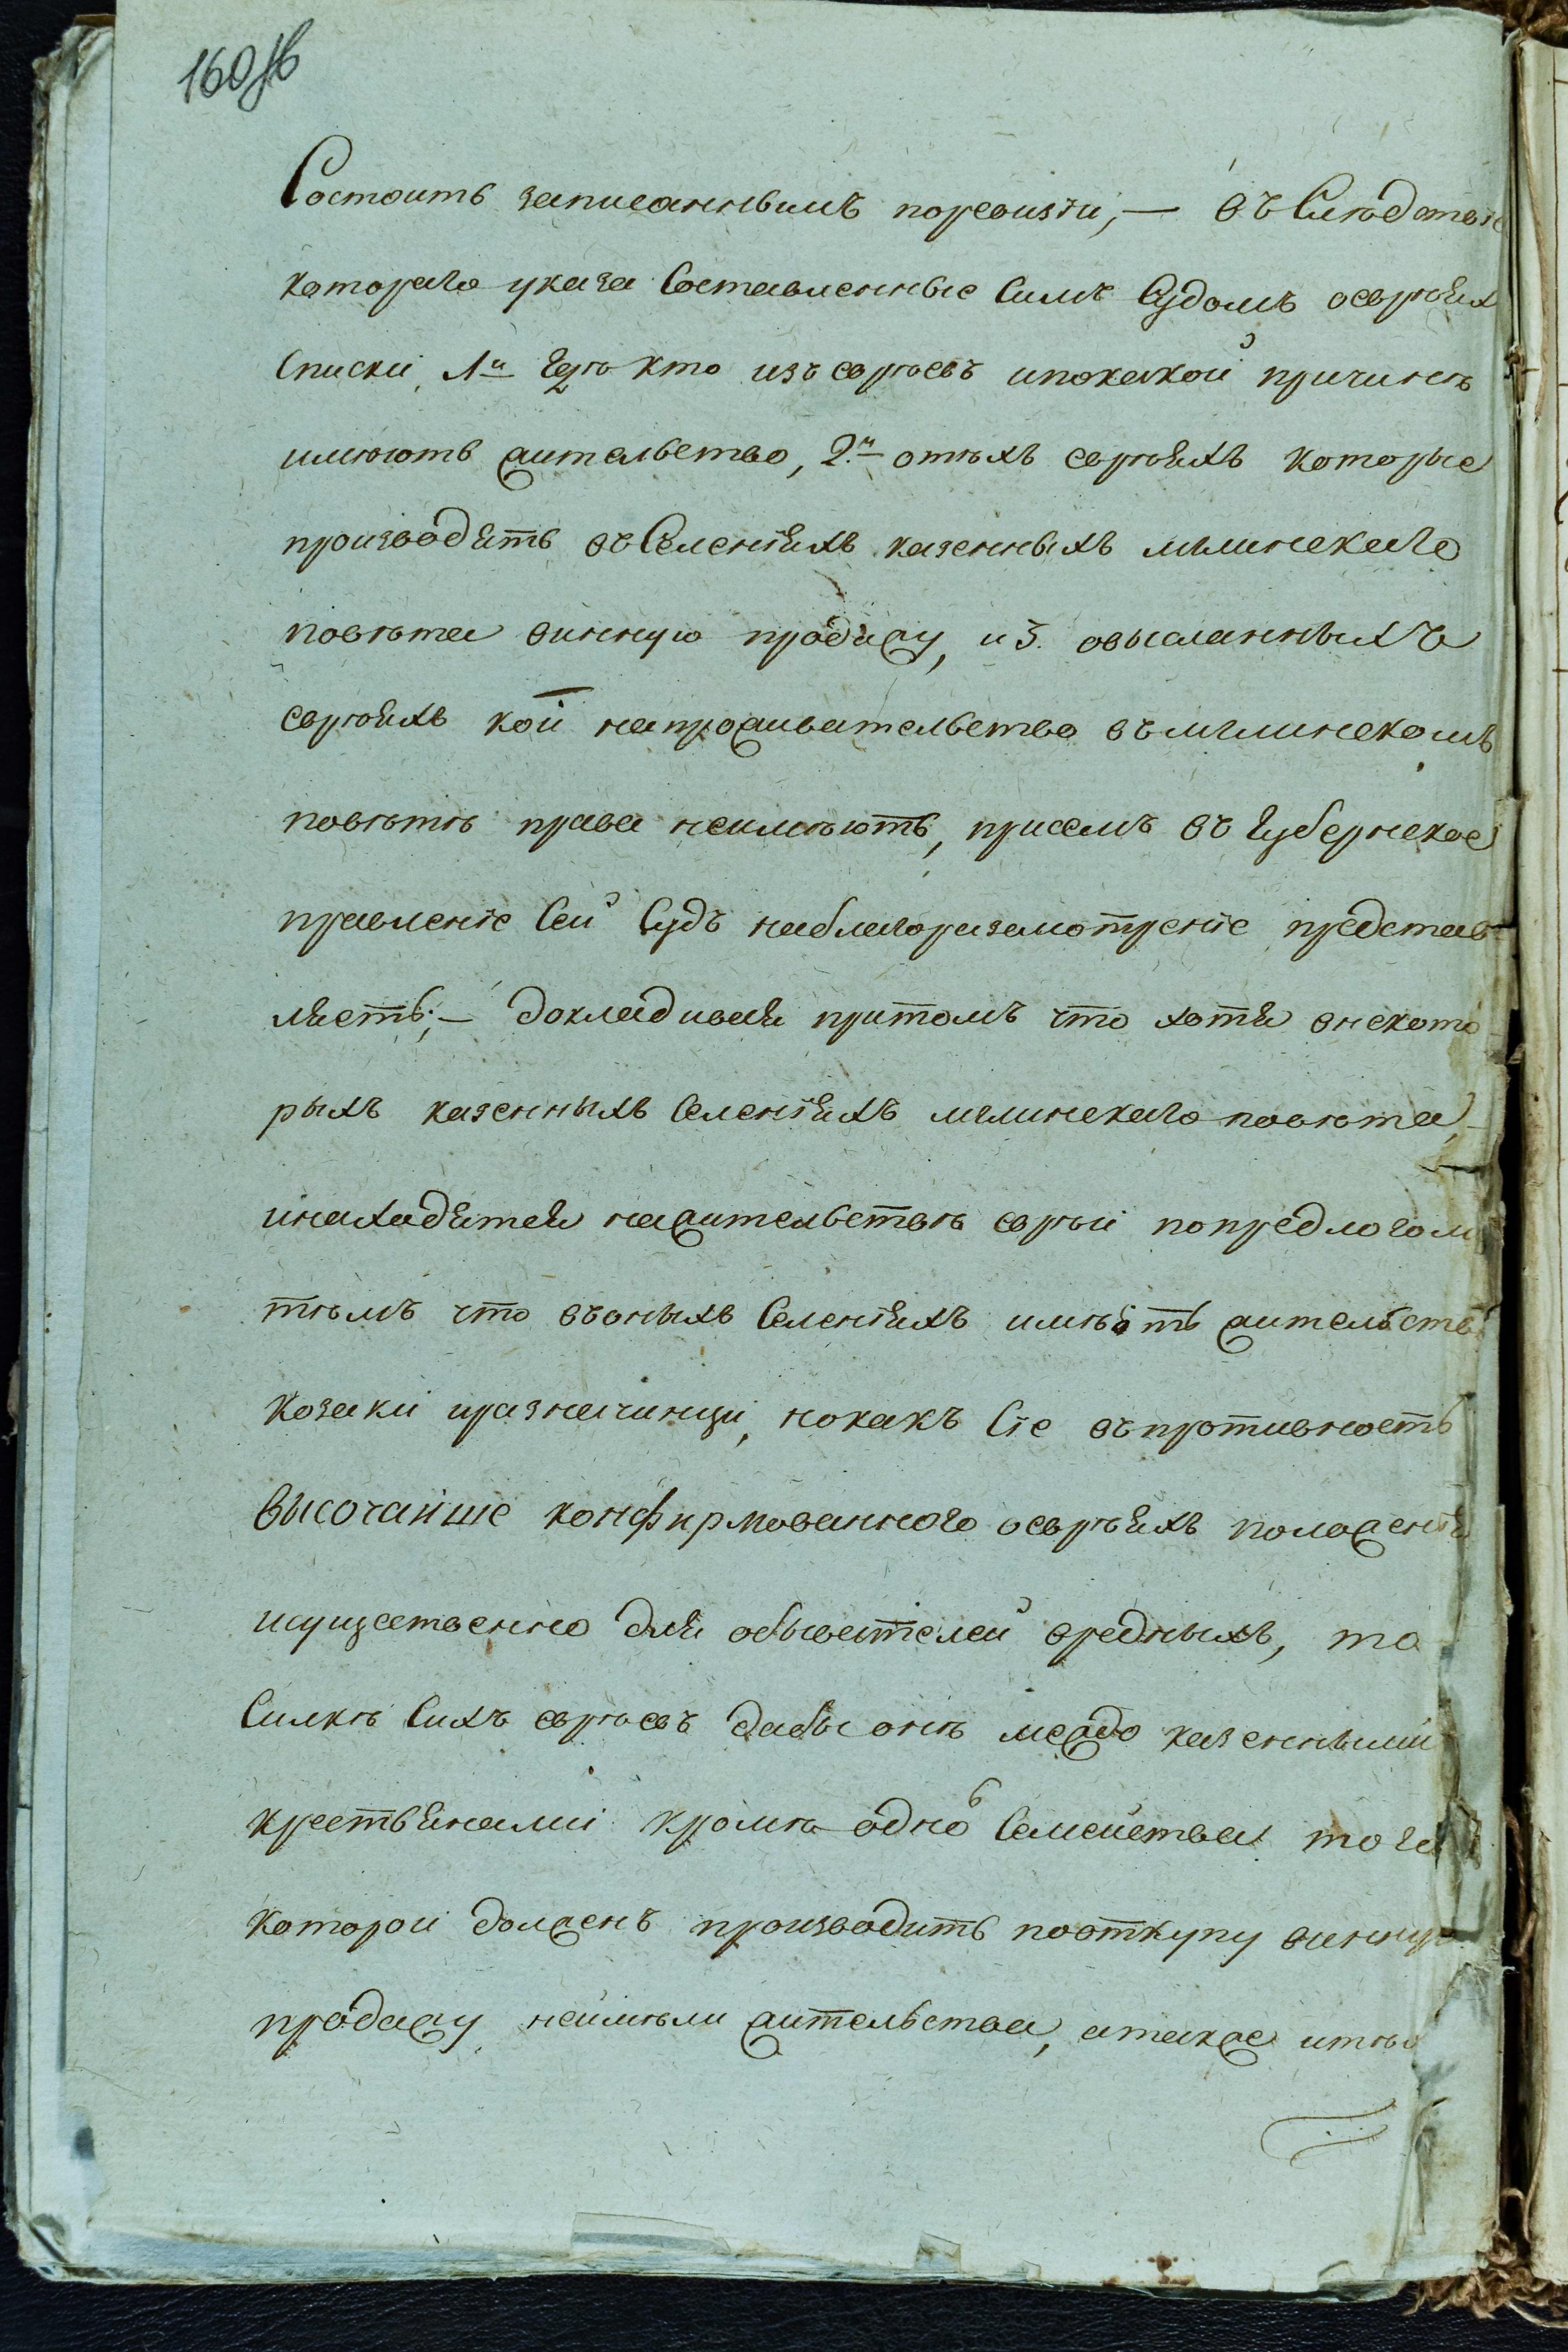 160 об
Состоитъ записаннымъ поревизіи, — въ Следствіе
котораго указа Составленные Симъ Судомъ оевреяхъ
Списки, 1й где кто изъ евреевъ ипокакой причинѣ
имѣютъ жительство, 2.й отѣхъ евреяхъ которые
производятъ въ Селеніяхъ казенныхъ мглинскаго
повѣта винную продажу, и 3. овысланныхъ
евреяхъ кои напроживательство въ мглинскомъ
повѣтѣ права неимѣютъ, присемъ въ Губернское
правленіе Сей Судъ наблагоразсмотреніе представ
ляетъ; — докладивая притомъ что хотя внекото
рыхъ казенныхъ Селеніяхъ мглинскаго повѣта,
инаходятся нажительствѣ евреи попредлогом
тѣмъ что въоныхъ Селеніяхъ имѣютъ жительство
козаки иразначинци, нокакъ Сіе въпротивность
высочайше конфирмованного оевреяхъ положенія
исущественно для обывателей вредныхъ, то
Силкѣ Сихъ евреевъ дабы онѣ междо казенными
крестьянами кромѣ одного Семейства того
которой долженъ производить пооткупу винную
продажу, неимѣли жительства, атакже итѣ